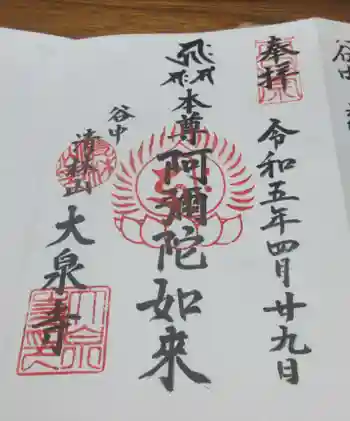 奉拝
令和五年四月廿九日
本尊
阿彌陀如来
谷中
清林山
大泉寺
谷中